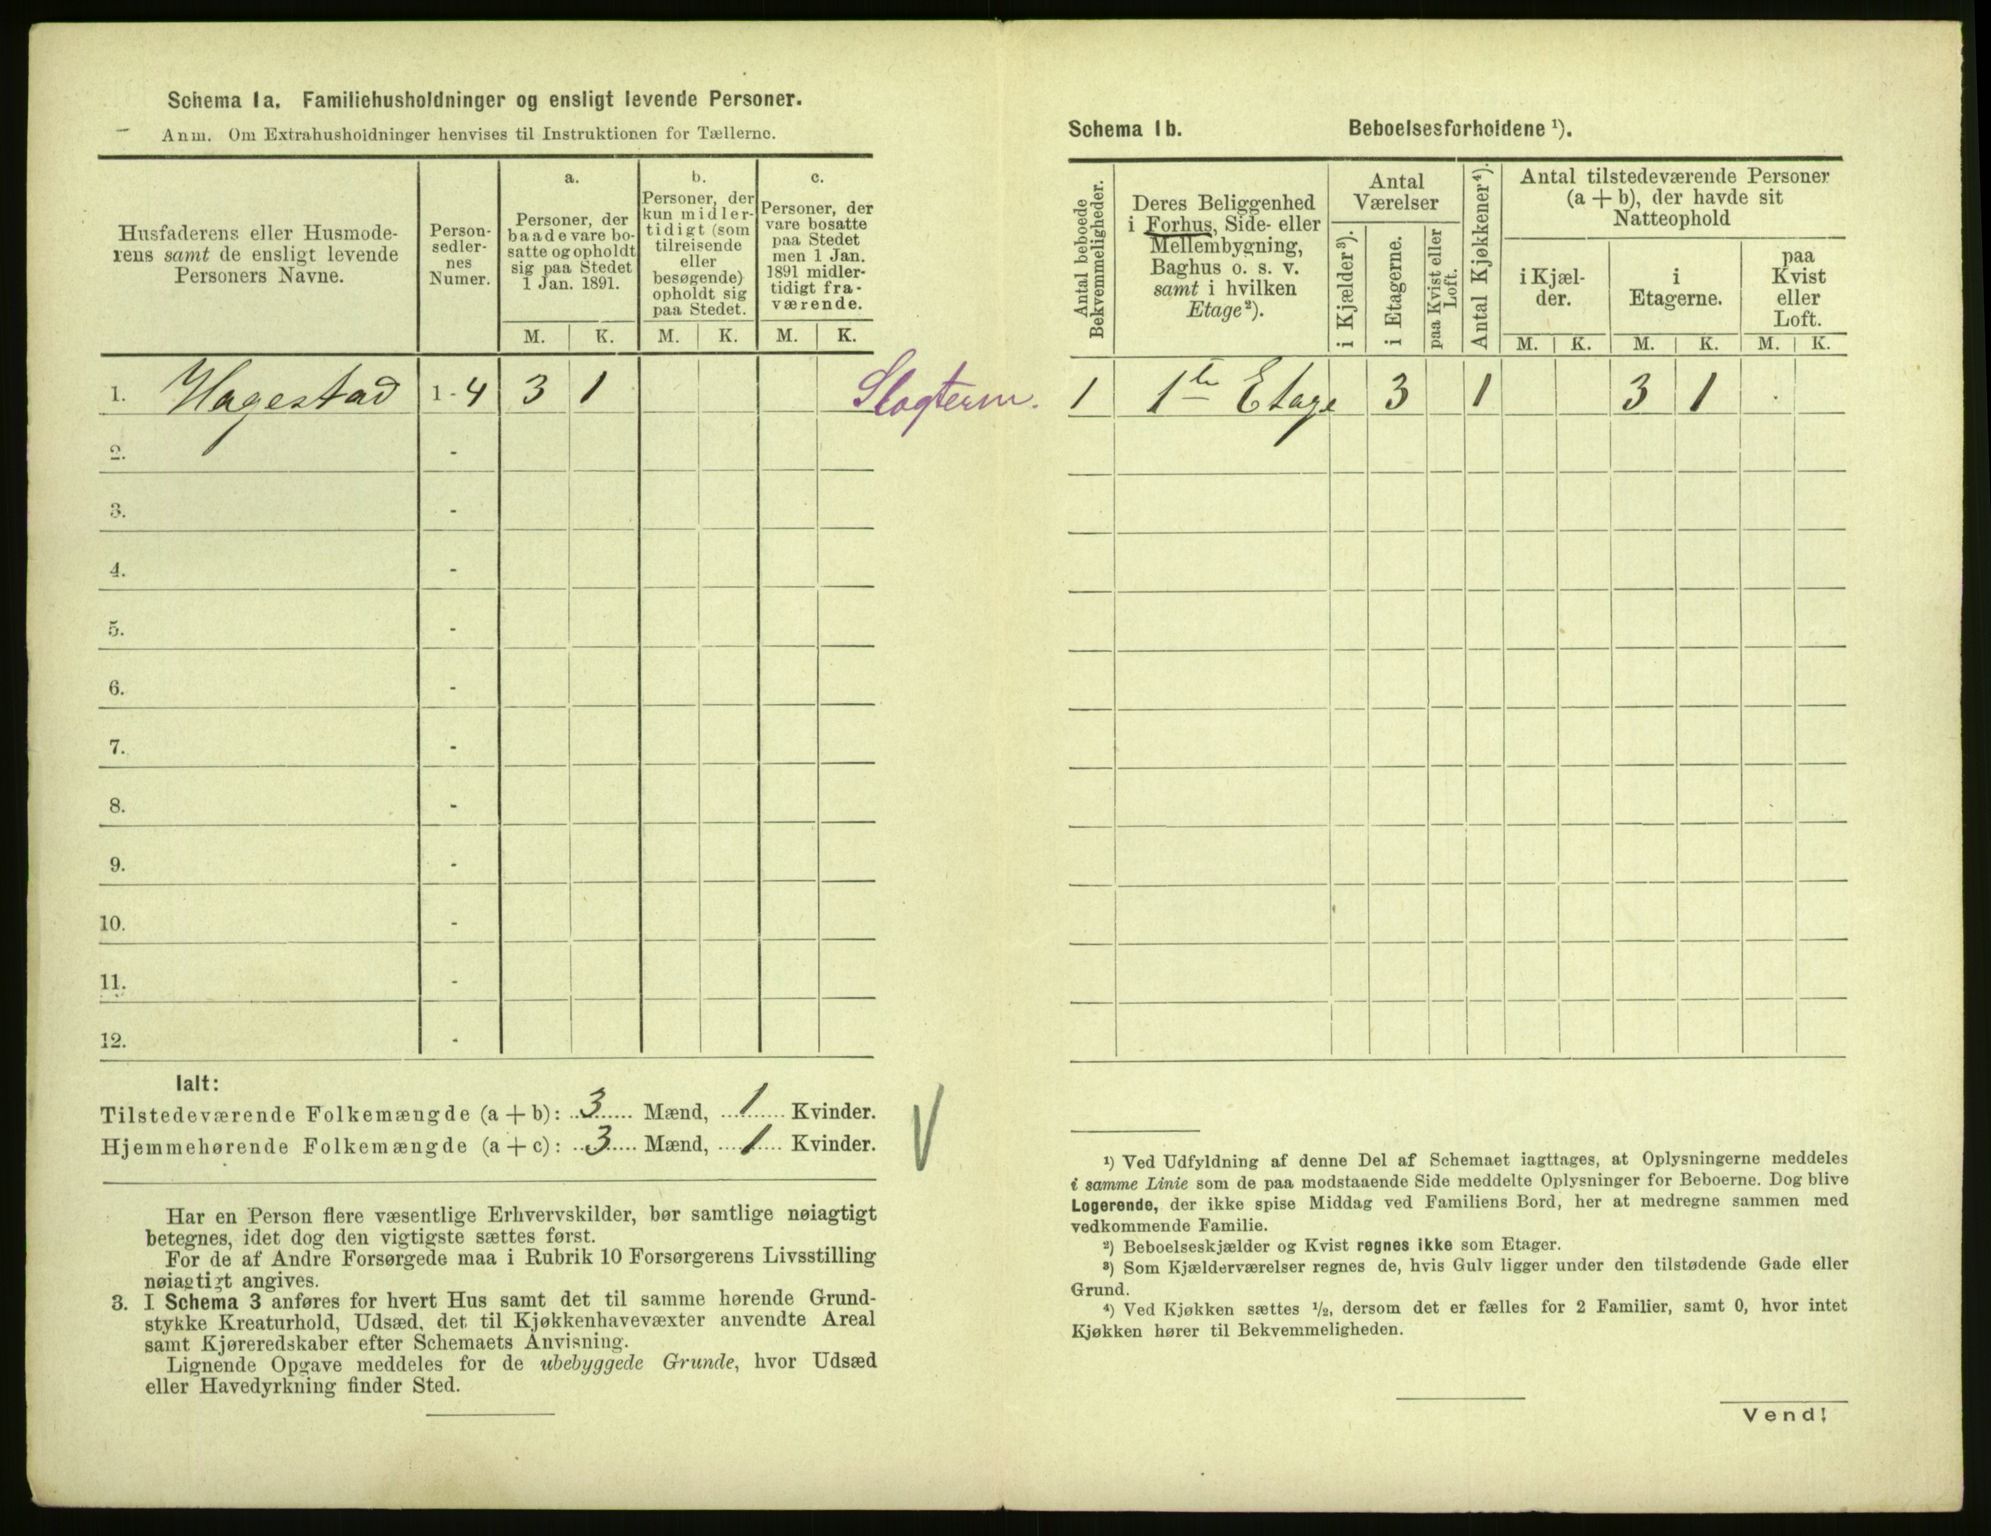 Schema 1a. Familiehusholdninger og ensligt levende Personer.
Anm. Om Extrahusholdninger henvises til Instruktionen for Tællerne.
Husfaderens eller Husmode-
rens samt de ensligt levende
Personers Navne.
Person-
sedler-
nes
Numer.
a.
Personer, der
baade vare bo-
satte og opholdt
sig paa Stedet
1 Jan. 1891.
b.
Personer, der
kun midler-
tidigt (som
tilreisende
eller
besøgende)
opholdt sig
paa Stedet.
c.
Personer, der
vare bosatte
paa Stedet
men 1 Jan.
1891 midler-
tidigt fra-
værende.
M. K. M. K. M. K.
1. Hagestad 1-4 3 1 Slagterm.
2. -
3. -
4. -
5. -
6. -
7. -
8. -
9. -
10. -
11. -
12. -
Ialt:
Tilstedeværende Folkemængde (a + b): 3 Mænd, 1 Kvinder.
Hjemmehørende Folkemængde (a + c): 3 Mænd, 1 Kvinder.
Har en Person flere væsentlige Erhvervskilder, bør samtlige nøiagtigt
betegnes, idet dog den vigtigste sættes først.
For de af Andre Forsørgede maa i Rubrik 10 Forsørgerens Livsstilling
nøiagtigt angives.
3. I Schema 3 anføres for hvert Hus samt det til samme hørende Grund-
stykke Kreaturhold, Udsæd, det til Kjøkkenhavevæxter anvendte Areal
samt Kjøreredskaber efter Schemaets Anvisning.
Lignende Opgave meddeles for de ubebyggede Grunde, hvor Udsæd
eller Havedyrkning finder Sted.
Schema 1b. Beboelsesforholdene ¹).
Antal beboede
Bekvemmeligheder.
Deres Beliggenhed
i Forhus, Side- eller
Mellembygning,
Baghus o. s. v.
samt i hvilken
Etage²).
Antal
Værelser
i Kjælder³).
i Etagerne.
paa Kvist eller
Loft.
Antal Kjøkkener⁴).
Antal tilstedeværende Personer
(a + b), der havde sit
Natteophold
i Kjæl-
der.
i
Etagerne.
paa
Kvist
eller
Loft.
M. K. M. K. M. K.
1 1ste Etage 3 1 3 1
¹) Ved Udfyldning af denne Del af Schemaet iagttages, at Oplysningerne meddeles
i samme Linie som de paa modstaaende Side meddelte Oplysninger for Beboerne. Dog blive
Logerende, der ikke spise Middag ved Familiens Bord, her at medregne sammen med
vedkommende Familie.
²) Beboelseskjælder og Kvist regnes ikke som Etager.
³) Som Kjælderværelser regnes de, hvis Gulv ligger under den tilstødende Gade eller
Grund.
⁴) Ved Kjøkken sættes ½, dersom det er fælles for 2 Familier, samt 0, hvor intet
Kjøkken hører til Bekvemmeligheden.
Vend!